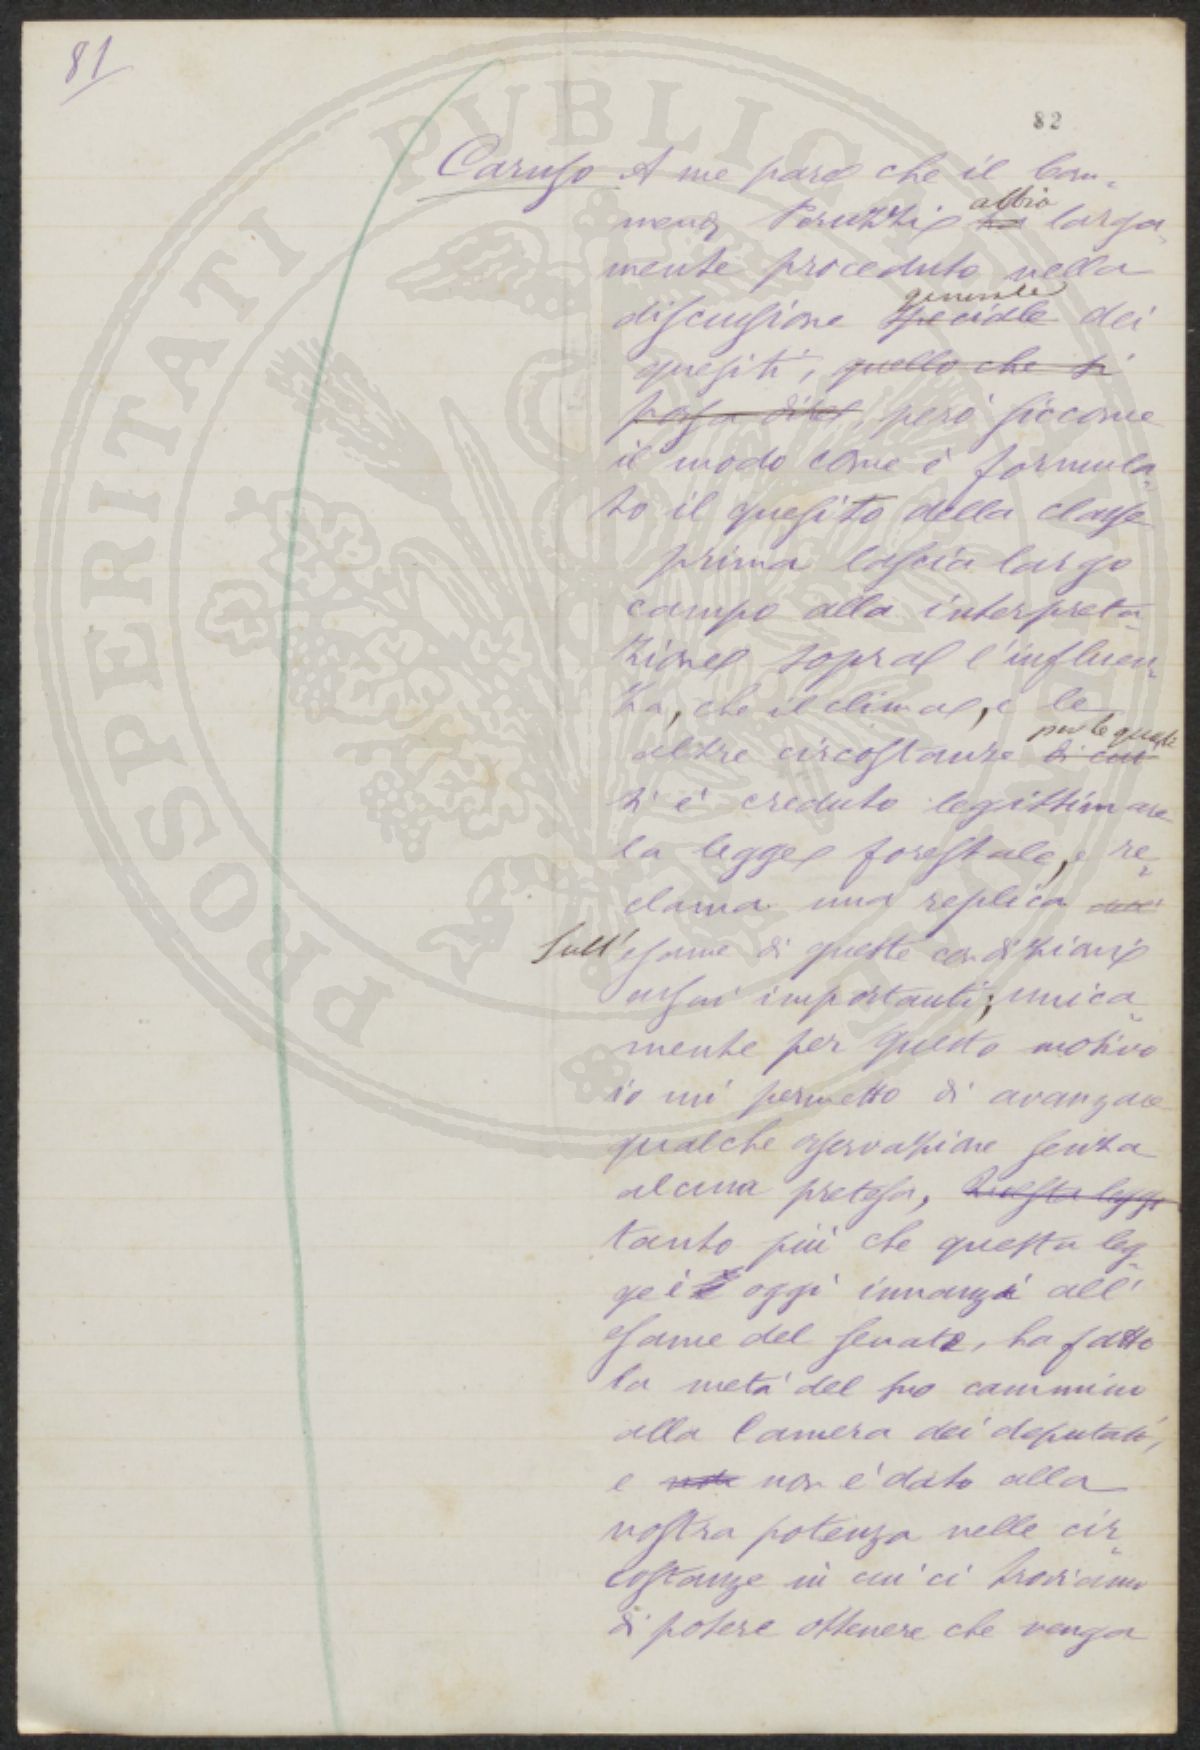 81
82
Caruso A me pare che il Com-
mend. Peruzzi ha abbia larga-
mente proceduto nella
discussione speciale generale dei
quesiti, quello che si
possa dire, però siccome
il modo come è formula-
to il quesito della classe
prima lascia largo
campo alla interpreta-
zione sopra l'influen-
za, che il clima, e le
altre circostanze di cui per le quali
si è creduto legittimare
la legge forestale, e re-
clama una replica
sull'esame di queste condizioni
assai importanti; unica-
mente per questo motivo
io mi permetto di avanzare
qualche osservazione senza
alcuna pretesa, Questa legge
tanto più che questa leg-
ge è oggi innanzi all'
esame del senato, ha fatto
la metà del suo cammino
alla Camera dei deputati,
e non è dato alla
nostra potenza nelle cir-
costanze in cui ci troviamo
di potere ottenere che venga
PROSPERITATI PVBLICAE